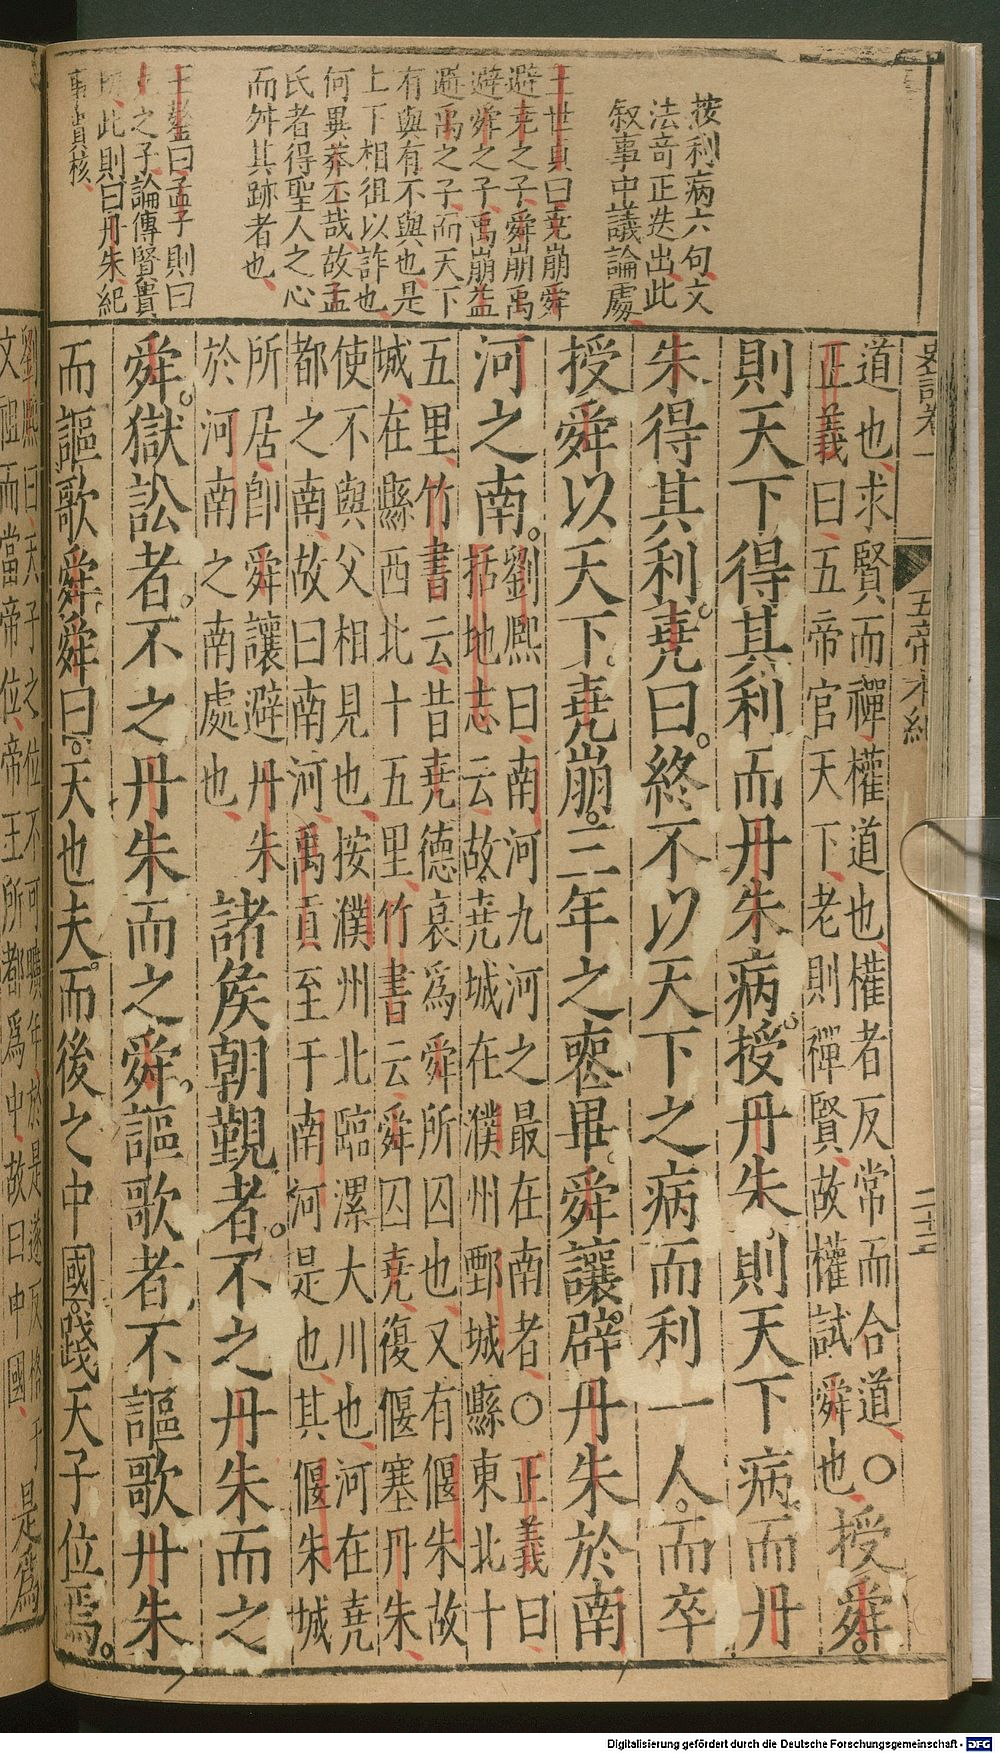 按利病六句文
法奇正迭出此
叙事中議論處
王世貞曰堯崩舜
避堯之子舜崩禹
避舜之子禹崩益
避禹之子而天下
有與有不與也是
上下相徂以詐也
何異莽丕哉故孟
氏者得聖人之心
而舛其跡者也
王鏊曰孟子則曰
之子論傳賢貴
此則曰丹朱紀
事貴核
史記卷一
五帝本紀
二十三
道也求賢而禪權道也權者反常而合道〇授舜
正義曰五帝官天下老則禪賢故權試舜也
則天下得其利而丹朱病授丹朱則天下病而丹
朱得其利堯曰終不以天下之病而利一人而卒
授舜以天下堯崩三年之喪畢舜讓辟丹朱於南
河之南劉熙曰南河九河之最在南者〇正義曰
括地志云故堯城在濮州鄄城縣東北十
五里竹書云昔堯德衰為舜所囚也又有偃朱故
城在縣西北十五里竹書云舜囚堯復偃塞丹朱
使不與父相見也按濮州北臨漯大川也河在堯
都之南故曰南河禹貢至于南河是也其偃朱城
所居即舜讓避丹朱
於河南之南處也
諸侯朝覲者不之丹朱而之
舜獄訟者不之丹朱而之舜謳歌者不謳歌丹朱
而謳歌舜舜曰天也夫而後之中國踐天子位焉
劉熙曰天子之位不可曠年於是遂反格于
文祖而當帝位帝王所都為中故曰中國
是為
Digitalisierung gefördert durch die Deutsche Forschungsgemeinschaft - DFG